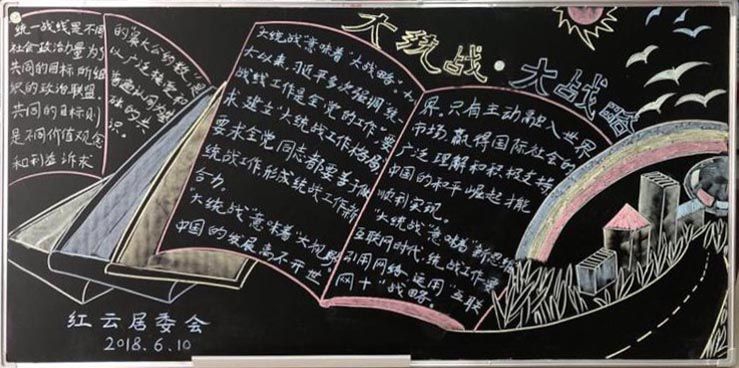 大统战·大战略
统一战线是不同
社会政治力量为了
共同的目标所组
织的政治联盟,
共同的目标则
是不同价值观念
和利益诉求
的"最大公约数",是
以广泛接受和
普遍认同为基
础的共
识。
"大统战"意味着"大战略"。
大以来,习近平多次强调"统一
战线工作是全党的工作"。要
求建立"大统战工作格局"
要求全党同志都要善于做
统战工作,形成统战工作新
合力。
"大统战"意味着"大视野"。
中国的发展离不开世
界。只有主动融入世界
市场,赢得国际社会的
广泛理解和积极支持,
中国的和平崛起才能
顺利实现。
"大统战"意味着"新思维"
互联网时代,统战工作要
引用网络,运用"互联
网+"战略。
红云居委会
2018.6.10